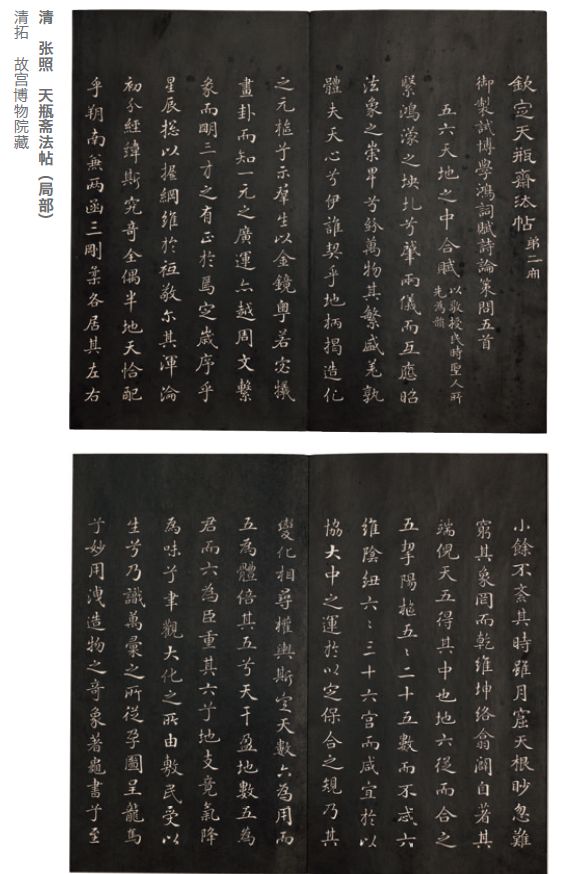 清 张照 天瓶斋法帖（局部）
清拓 故宫博物院藏
欽定天瓶齋法帖 第二冊
御製試博學鴻詞賦詩論策問五首
五六天地之中合賦 以敬授民時聖人所先為韻
繄鴻濛之坱圠兮肇兩儀而互應昭
法象之崇卑兮紛萬物其繁盛羌孰
體夫天心兮伊誰契乎地柄揭造化
之元樞兮示羣生以金鏡粵若宓犧
畫卦而知一元之廣運六越周文繫
象而明三才之有正於焉定歲序乎
星辰揔以握綱維於祗敬尔其渾淪
初分經緯斯完奇全偶半地天恰配
乎朔南無兩函三剛葉各居其左右
小餘不紊其時雖月窟天根眇忽難
窮其象罔而乾維坤絡翕闢自著其
端倪天五得其中也地六從而合之
五挈陽樞五〻二十五數而不忒六
維陰紐六〻三十六宮而咸宜於以
協大中之運於以定保合之規乃其
變化相尋權輿斯定天數六為用而
五為體倍其五兮天干盈地數五為
君而六為臣重其六兮地支竟氣降
為味兮聿觀大化之所由敷民受以
生兮乃識萬彙之所從孕圖呈龍馬
兮妙用洩造物之奇象著龜書兮至